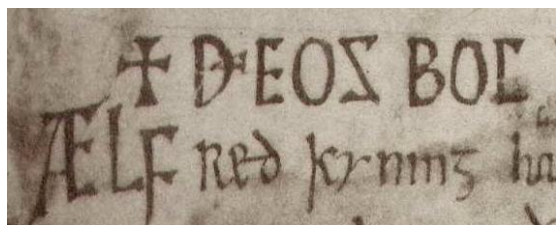 ✝ ÐEOS BOC
ÆLFred kyninᵹ ha